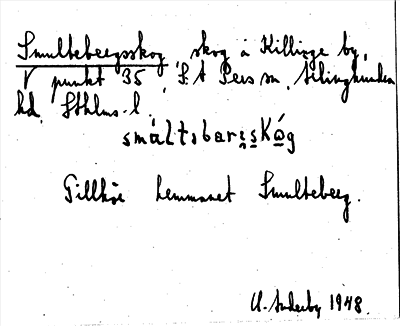 Smultebergsskog, skog å Killinge by,
V punkt 35, S:t Pers sn, Seminghundra
hd, Sthlms l.
smáltsbarsskóg
Tillhör hemmanet Smulteberg.
1948.